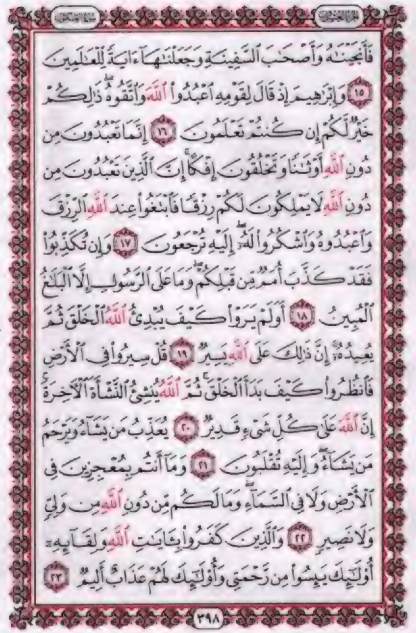 سورة العنكبوت الجزء العشرون
فَأَنجَيْنَٰهُ وَأَصْحَٰبَ ٱلسَّفِينَةِ وَجَعَلْنَٰهَآ ءَايَةً لِّلْعَٰلَمِينَ
١٥ وَإِبْرَٰهِيمَ إِذْ قَالَ لِقَوْمِهِ ٱعْبُدُوا۟ ٱللَّهَ وَٱتَّقُوهُ ۖ ذَٰلِكُمْ
خَيْرٌ لَّكُمْ إِن كُنتُمْ تَعْلَمُونَ ١٦ إِنَّمَا تَعْبُدُونَ مِن
دُونِ ٱللَّهِ أَوْثَٰنًا وَتَخْلُقُونَ إِفْكًا ۚ إِنَّ ٱلَّذِينَ تَعْبُدُونَ مِن
دُونِ ٱللَّهِ لَا يَمْلِكُونَ لَكُمْ رِزْقًا فَٱبْتَغُوا۟ عِندَ ٱللَّهِ ٱلرِّزْقَ
وَٱعْبُدُوهُ وَٱشْكُرُوا۟ لَهُۥٓ ۖ إِلَيْهِ تُرْجَعُونَ ١٧ وَإِن تُكَذِّبُوا۟
فَقَدْ كَذَّبَ أُمَمٌ مِّن قَبْلِكُمْ ۖ وَمَا عَلَى ٱلرَّسُولِ إِلَّا ٱلْبَلَٰغُ
ٱلْمُبِينُ ١٨ أَوَلَمْ يَرَوْا۟ كَيْفَ يُبْدِئُ ٱللَّهُ ٱلْخَلْقَ ثُمَّ
يُعِيدُهُۥٓ ۚ إِنَّ ذَٰلِكَ عَلَى ٱللَّهِ يَسِيرٌ ١٩ قُلْ سِيرُوا۟ فِى ٱلْأَرْضِ
فَٱنظُرُوا۟ كَيْفَ بَدَأَ ٱلْخَلْقَ ۚ ثُمَّ ٱللَّهُ يُنشِئُ ٱلنَّشْأَةَ ٱلْءَاخِرَةَ ۚ
إِنَّ ٱللَّهَ عَلَىٰ كُلِّ شَىْءٍ قَدِيرٌ ٢٠ يُعَذِّبُ مَن يَشَآءُ وَيَرْحَمُ
مَن يَشَآءُ ۖ وَإِلَيْهِ تُقْلَبُونَ ٢١ وَمَآ أَنتُم بِمُعْجِزِينَ فِى
ٱلْأَرْضِ وَلَا فِى ٱلسَّمَآءِ ۖ وَمَا لَكُم مِّن دُونِ ٱللَّهِ مِن وَلِىٍّ
وَلَا نَصِيرٍ ٢٢ وَٱلَّذِينَ كَفَرُوا۟ بِـَٔايَٰتِ ٱللَّهِ وَلِقَآئِهِۦٓ
أُو۟لَٰٓئِكَ يَئِسُوا۟ مِن رَّحْمَتِى وَأُو۟لَٰٓئِكَ لَهُمْ عَذَابٌ أَلِيمٌ ٢٣
٣٩٨